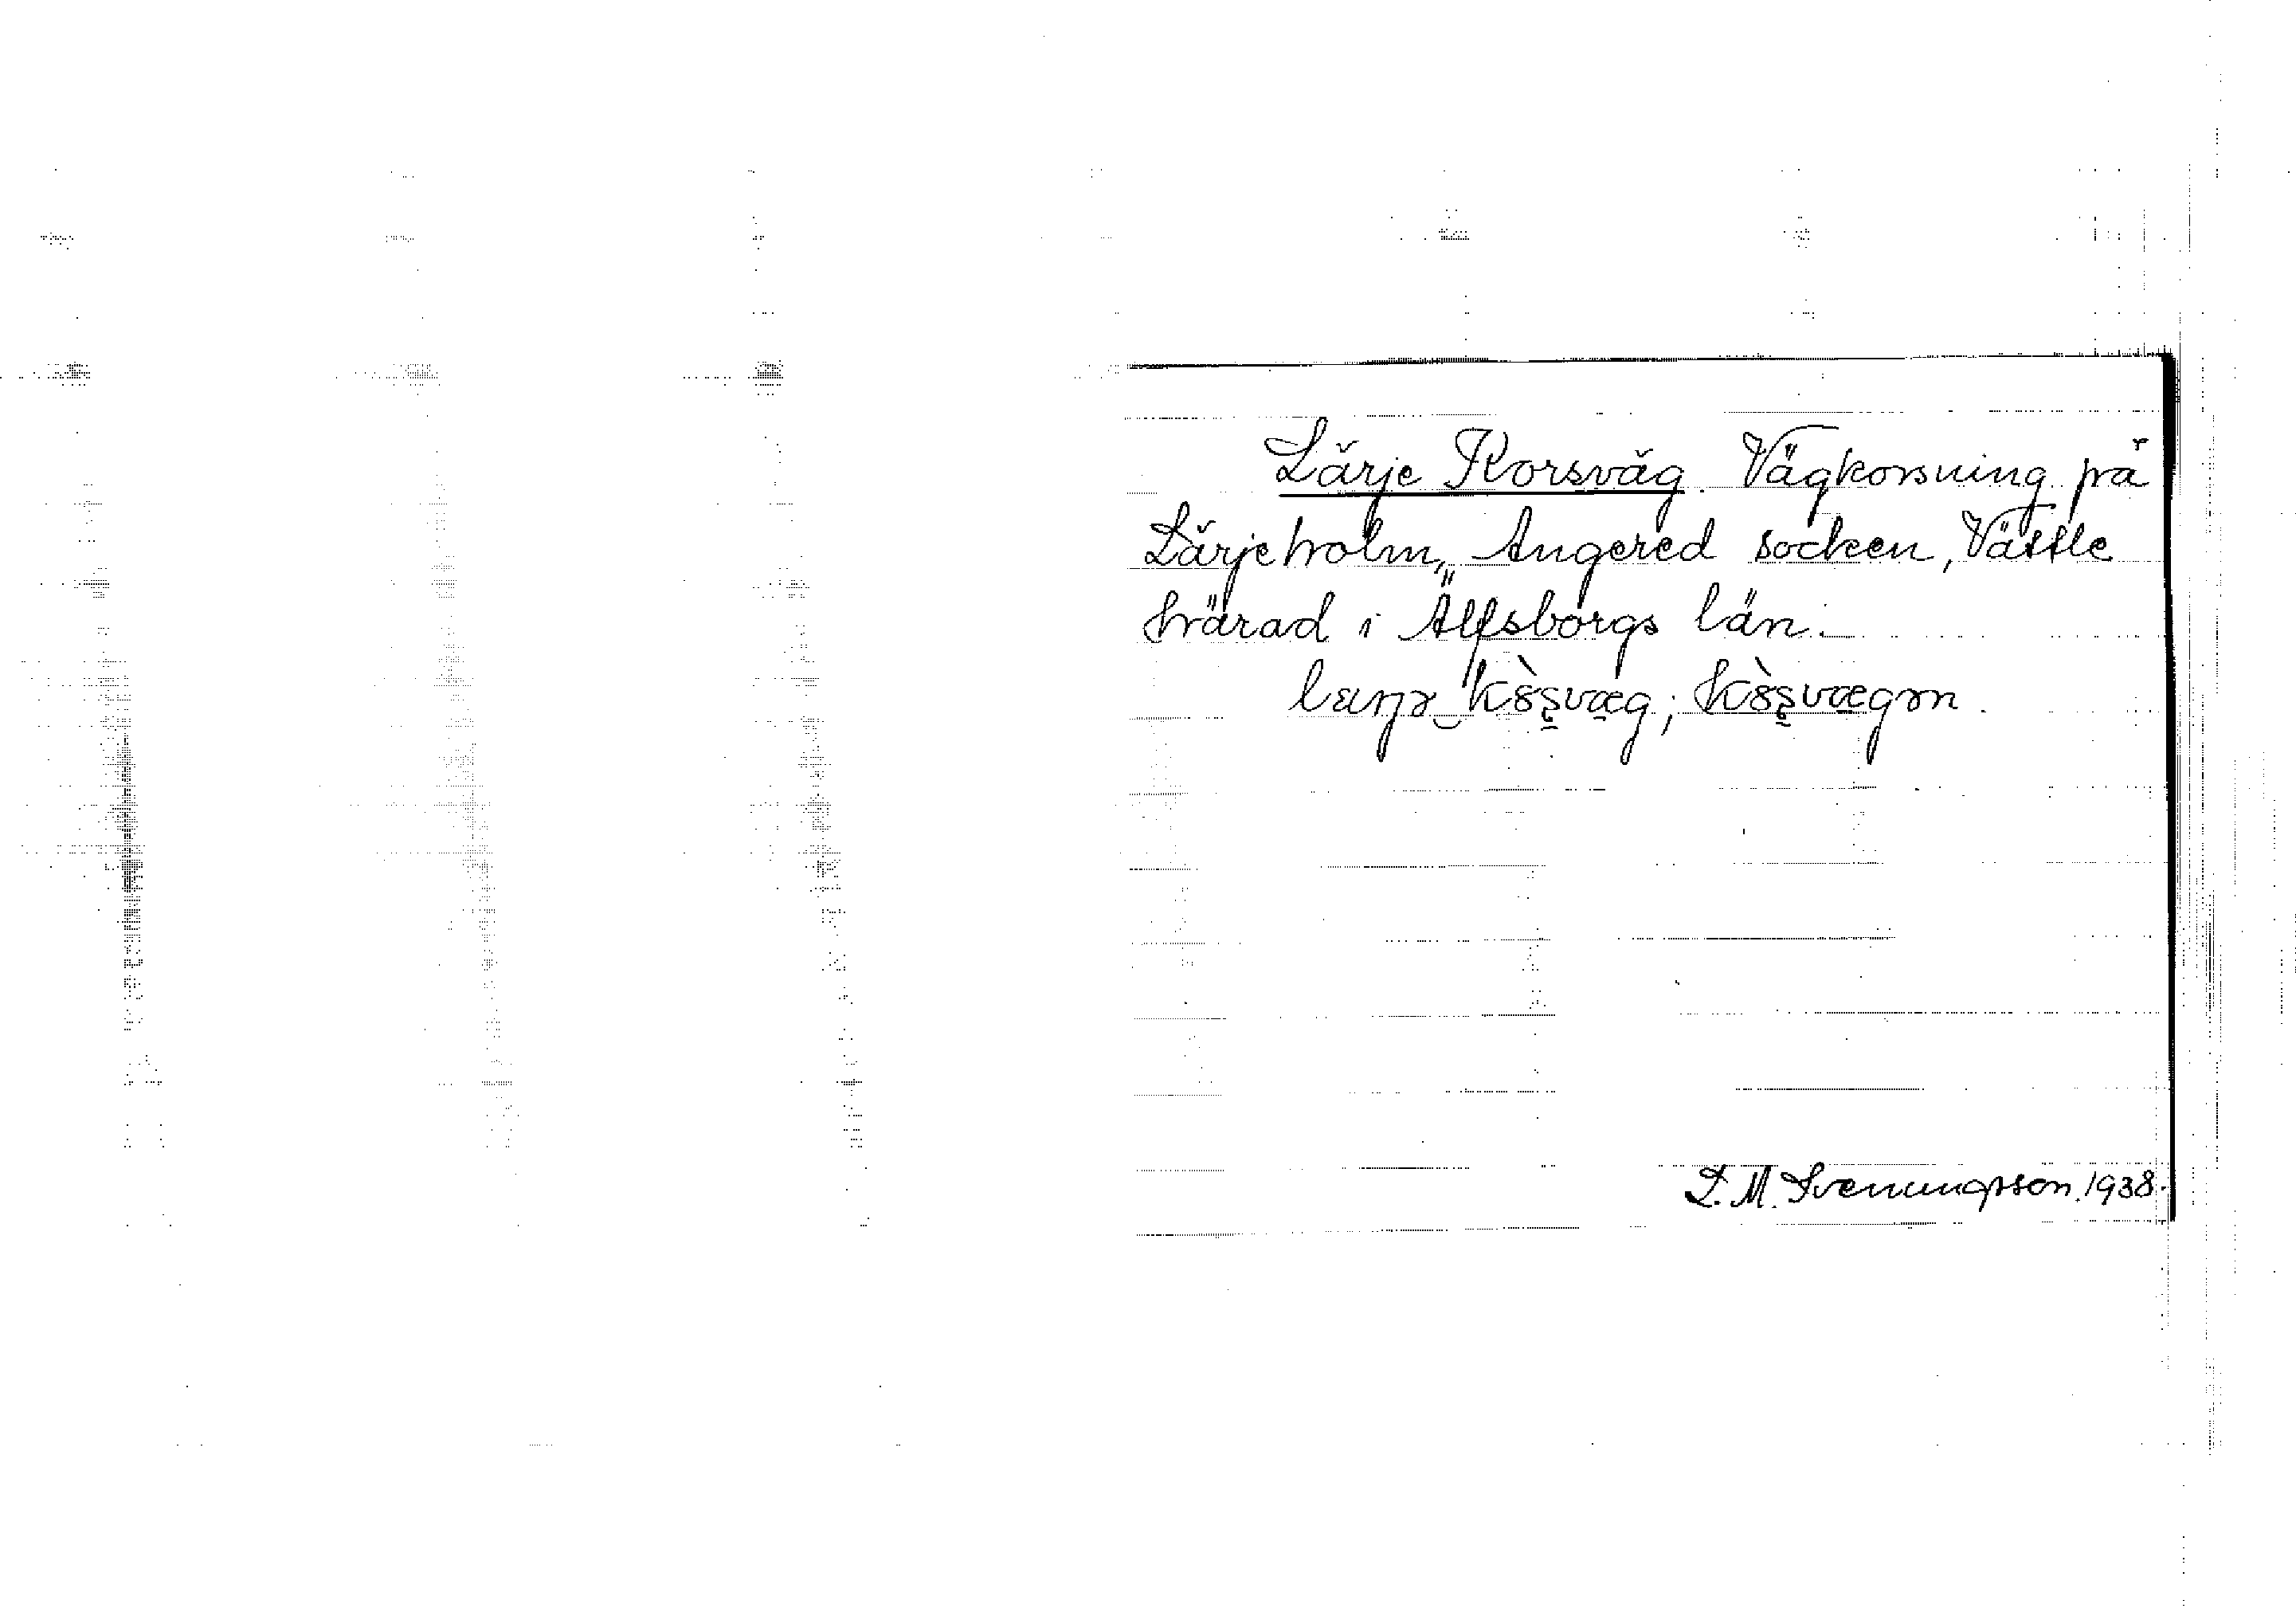 Lärje Korsväg. Vägkorsning på
Lärjeholm, Angered socken, Vättle
härad i Älfsborgs län.
Kòs̨væg; Kòs̨vægən.
D. M. Svenungsson. 1938.